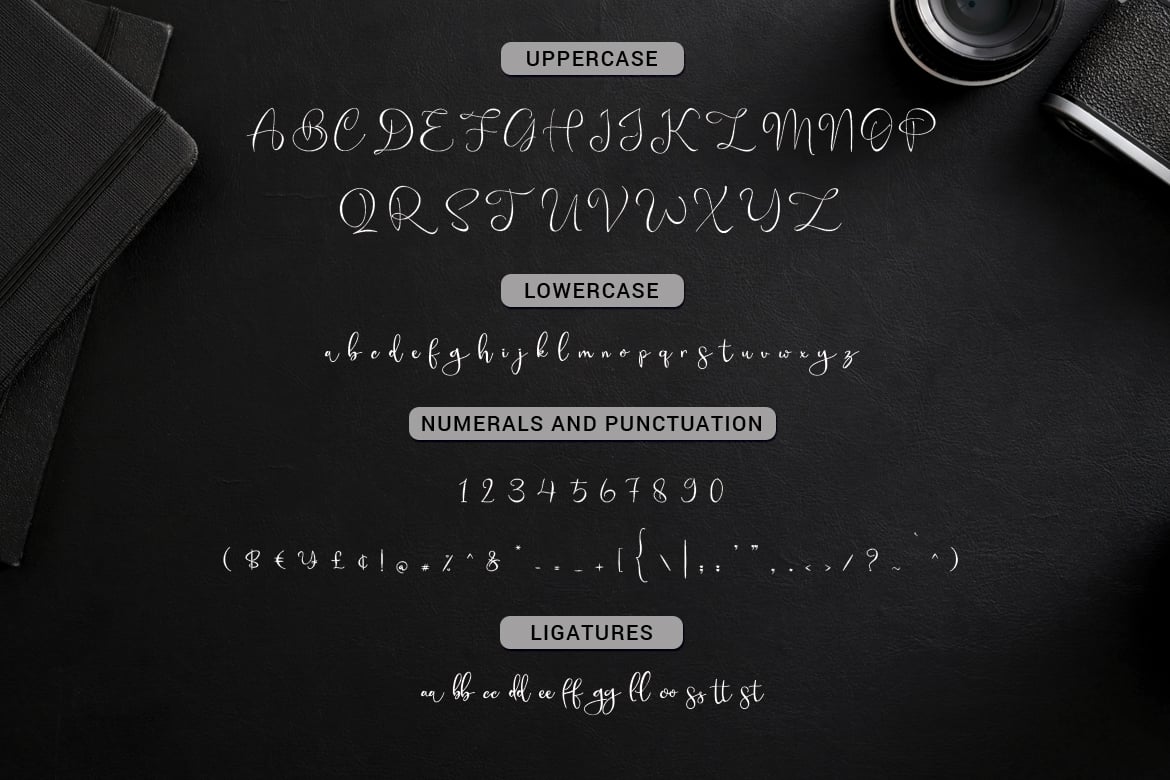 UPPERCASE
A B C D E F G H I J K L M N O P
Q R S T U V W X Y Z
LOWERCASE
a b c d e f g h i j k l m n o p q r s t u v w x y z
NUMERALS AND PUNCTUATION
1 2 3 4 5 6 7 8 9 0
( $ € ¥ £ ¢ ! @ # % ^ & * - = _ + [ { \ | ; : ' " , . < > / ? ~ ` ^ )
LIGATURES
aa bb cc dd ee ff gg ll oo ss tt st